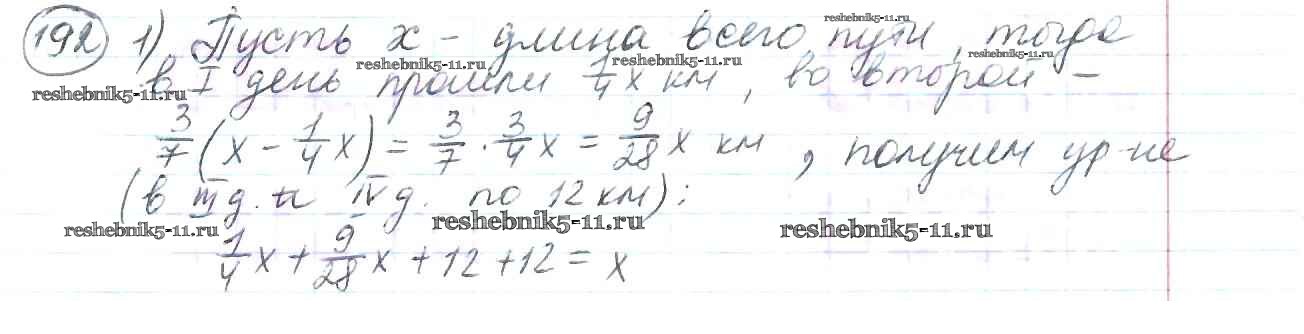 192 1) Пусть x - длина всего пути, тогда
в I день прошли 1/4 x км, во второй -
3/7 (x - 1/4 x) = 3/7 · 3/4 x = 9/28 x км, получим ур-ие
(в III д. и IV д. по 12 км):
1/4 x + 9/28 x + 12 + 12 = x
reshebnik5-11.ru
reshebnik5-11.ru
reshebnik5-11.ru
reshebnik5-11.ru
reshebnik5-11.ru
reshebnik5-11.ru
reshebnik5-11.ru
reshebnik5-11.ru